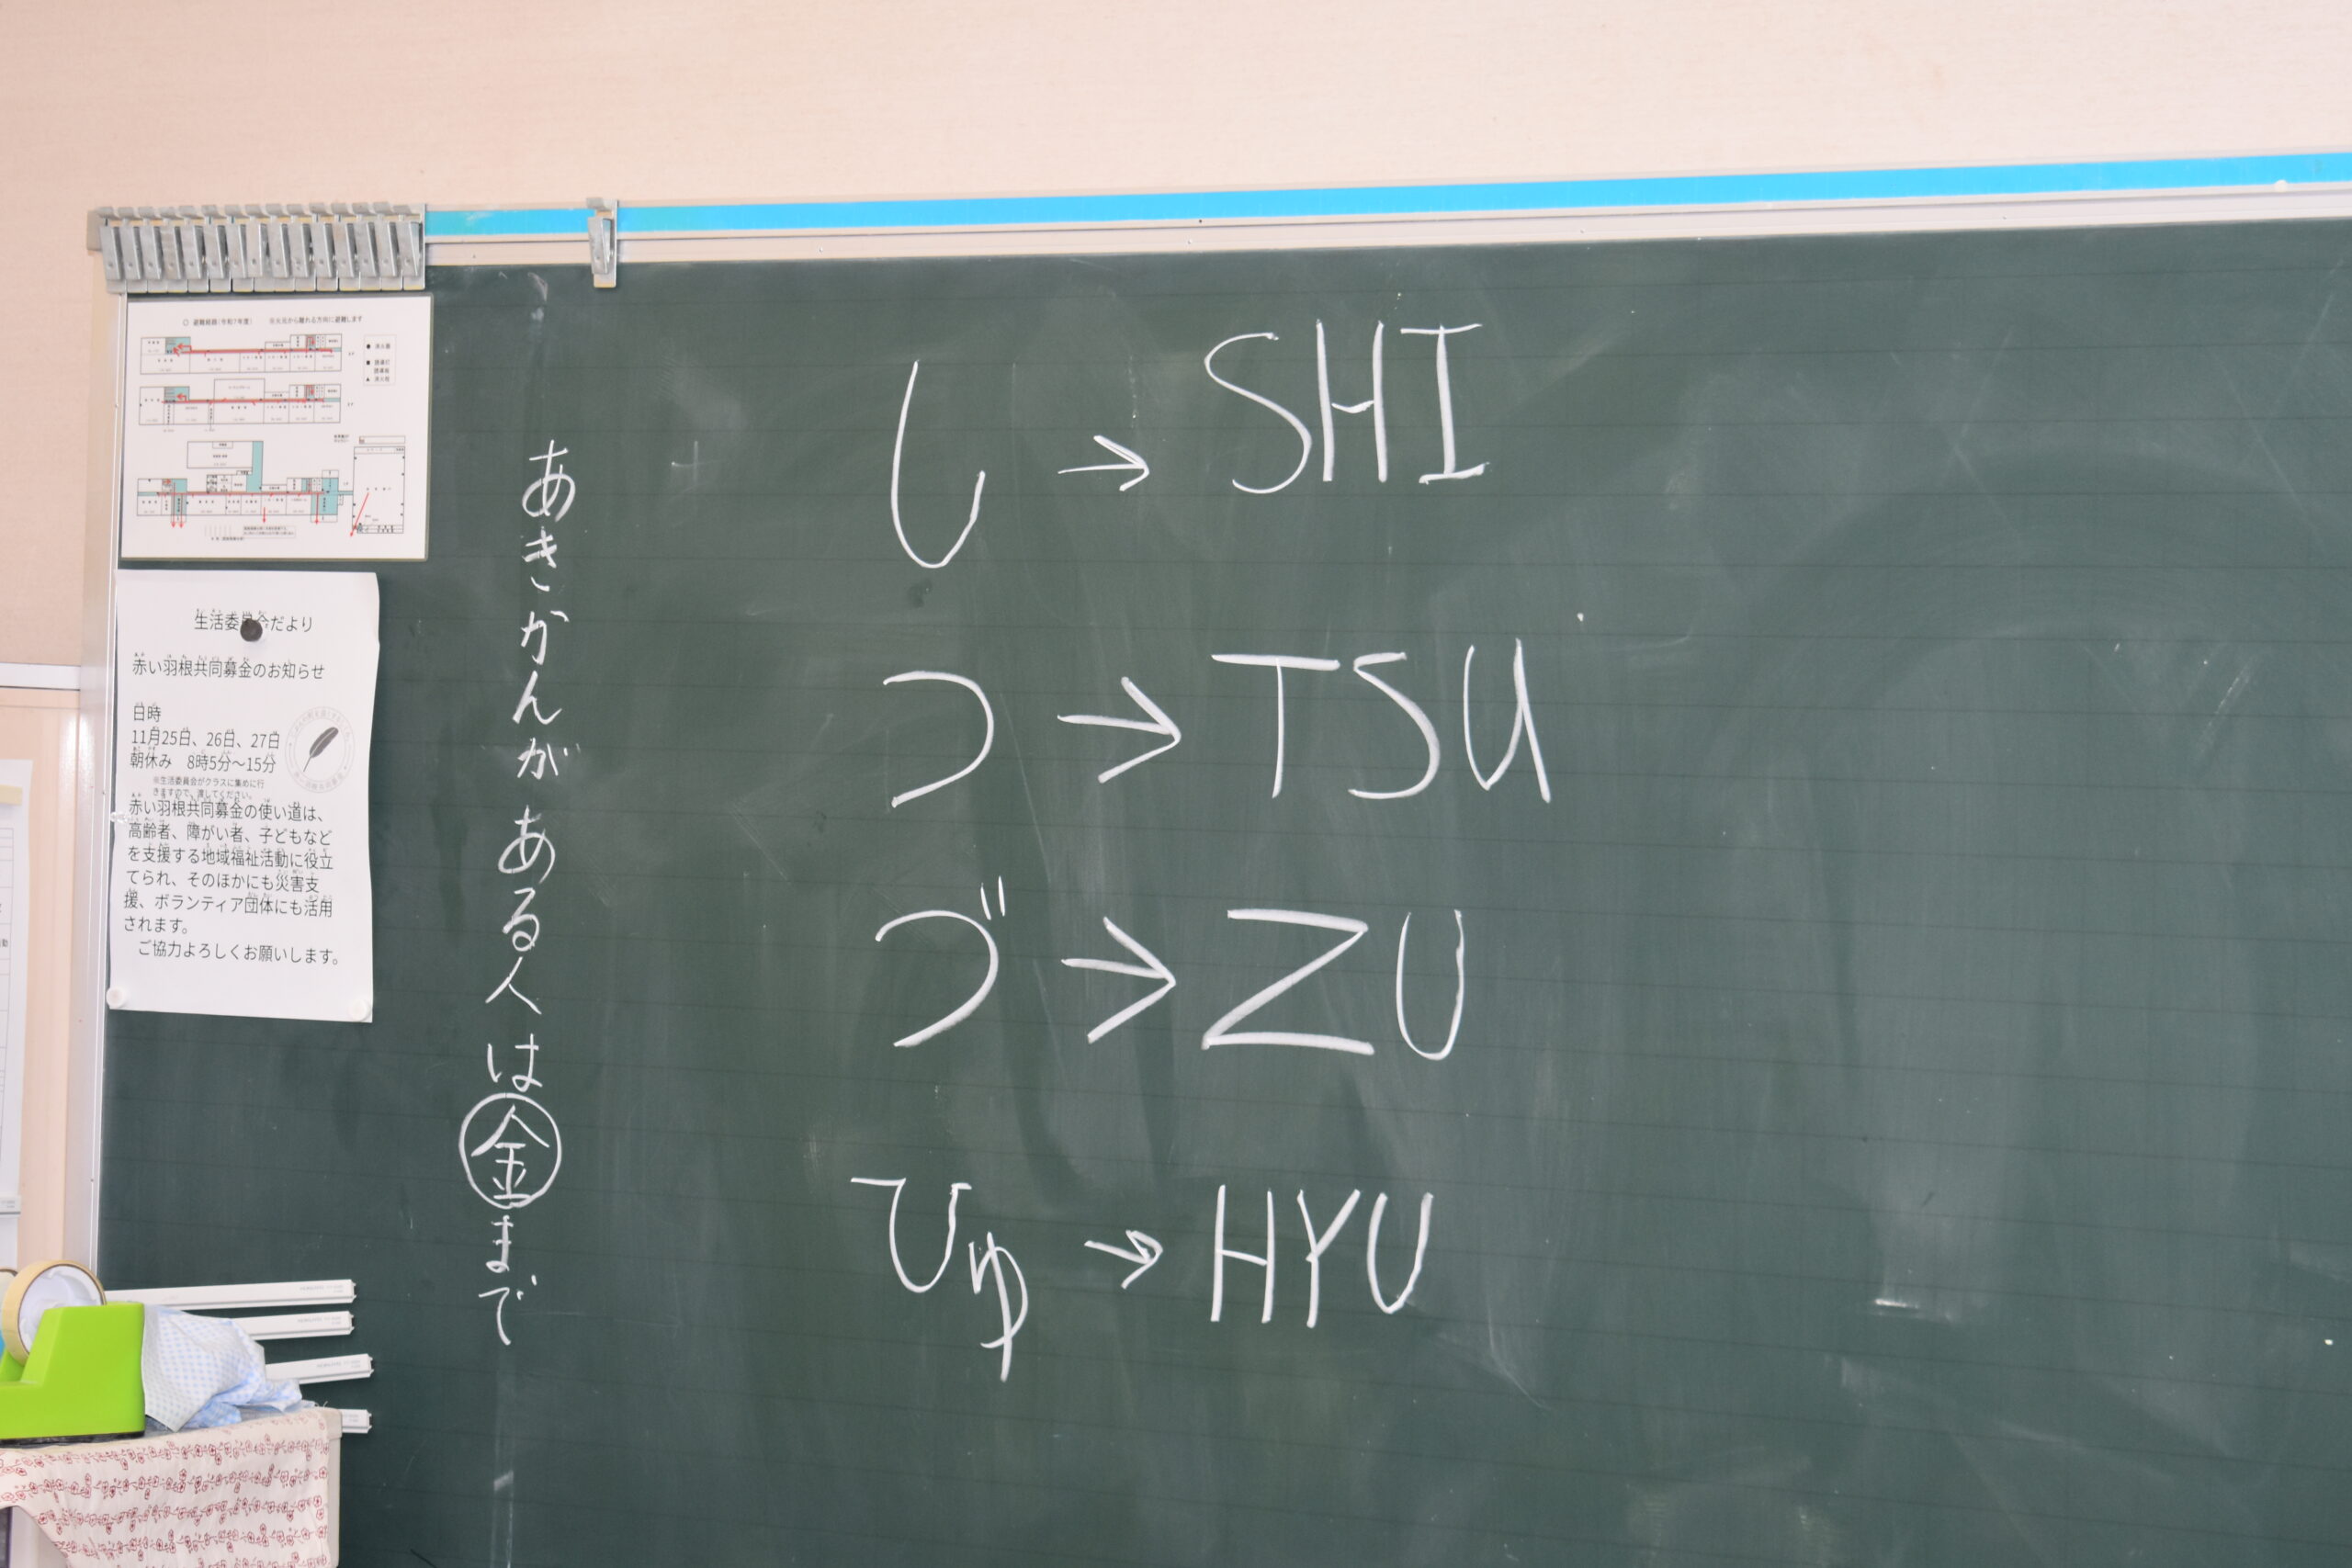 ○ 避難経路(令和7年度) ※火元から離れる方向に避難します
生活委員会だより
赤い羽根共同募金のお知らせ
日時
11月25日、26日、27日
朝休み 8時5分～15分
※生活委員会がクラスに集めに行
きますので、渡してください。
赤い羽根共同募金の使い道は、
高齢者、障がい者、子どもなど
を支援する地域福祉活動に役立
てられ、そのほかにも災害支
援、ボランティア団体にも活用
されます。
ご協力よろしくお願いします。
あきかんがある人は㊎まで
し→SHI
つ→TSU
づ→ZU
ひゅ→HYU